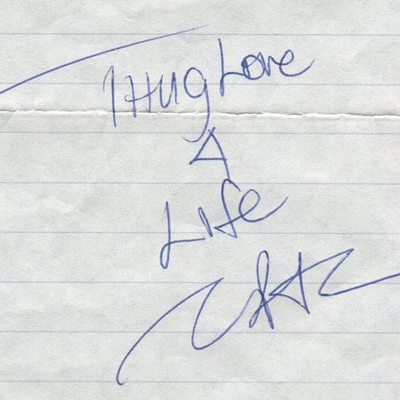 Thug Love
4
Life